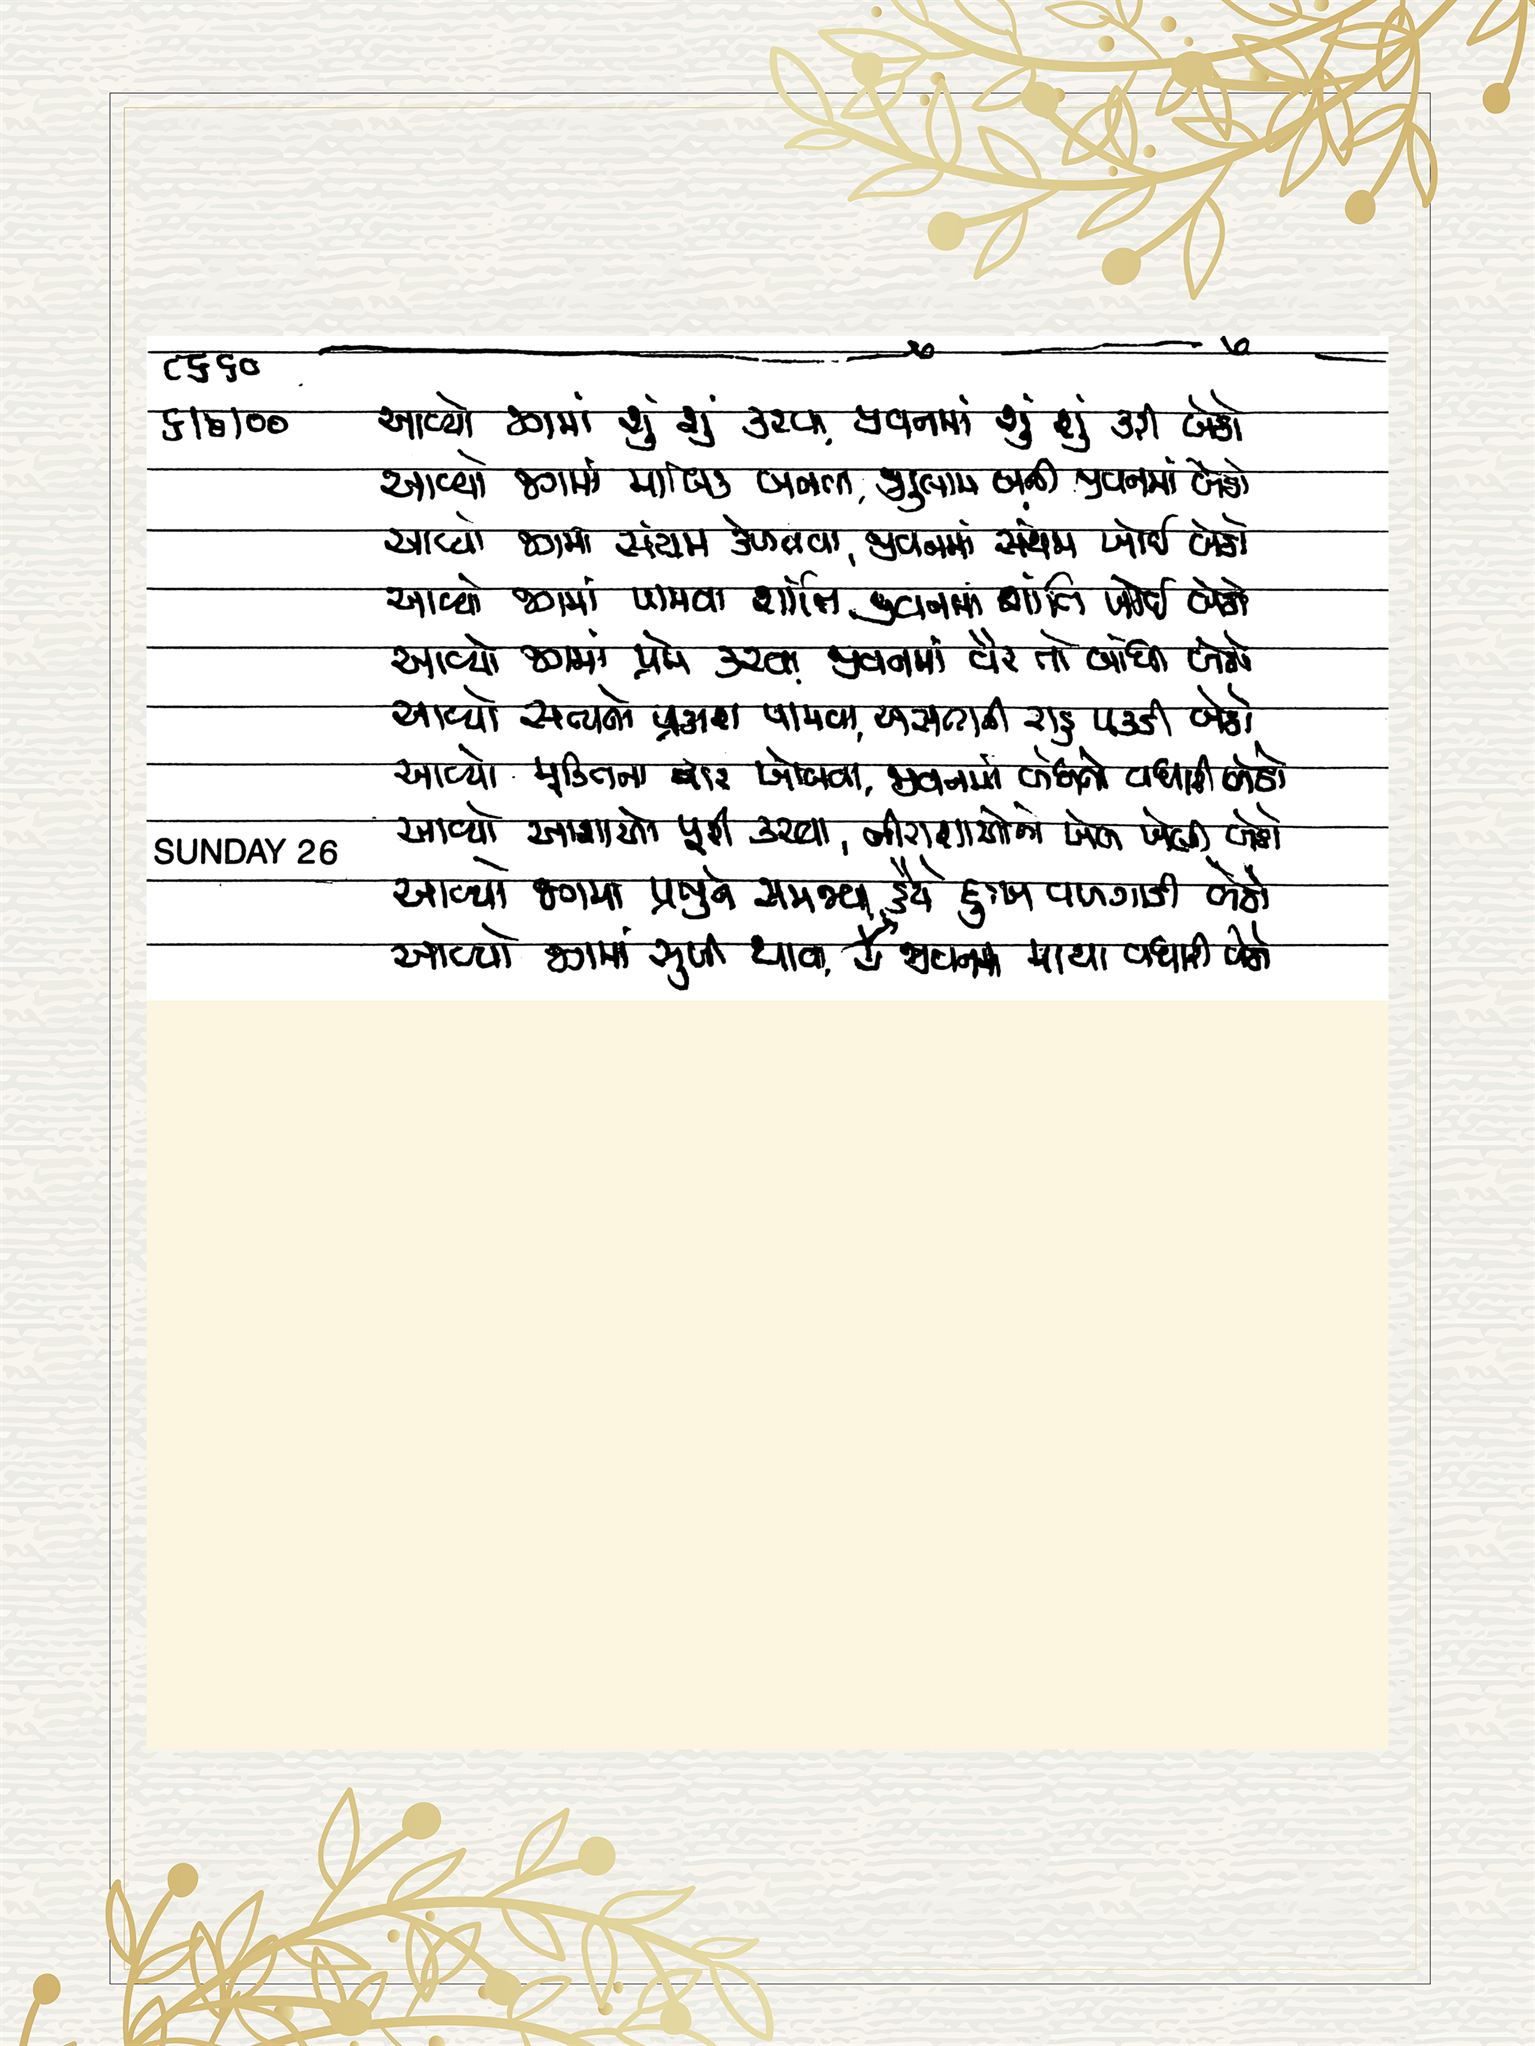 ૮૬૬૦
૬।૭।૦૦ આવ્યો જગમાં શું શું કરવા, જીવનમાં શું શું કરી બેઠો
આવ્યો જગમાં માલિક બનવા, ગુલામ બની જીવનમાં બેઠો
આવ્યો જગમાં સંયમ કેળવવા, જીવનમાં સંયમ ખોઈ બેઠો
આવ્યો જગમાં પામવા શાંતિ, જીવનમાં શાંતિ ખોઈ બેઠો
આવ્યો જગમાં પ્રેમ કરવા, જીવનમાં વૈર તો બાંધી બેઠો
આવ્યો સત્યનો પ્રકાશ પામવા, અસત્યની રાહ પકડી બેઠો
આવ્યો મૂક્તિના દ્વાર ખોલવા, જીવનમાં બંધનો વધારી બેઠો
આવ્યો આશાઓ પૂરી કરવા, નીરાશાઓનો ખેલ ખેલી બેઠો
SUNDAY 26
આવ્યો જગમાં પ્રભુને સમજવા, હૈયે દુઃખ વળગાડી બેઠો
આવ્યો જગમાં સુખી થાવા, જીવનમાં માયા વધારી બેઠો